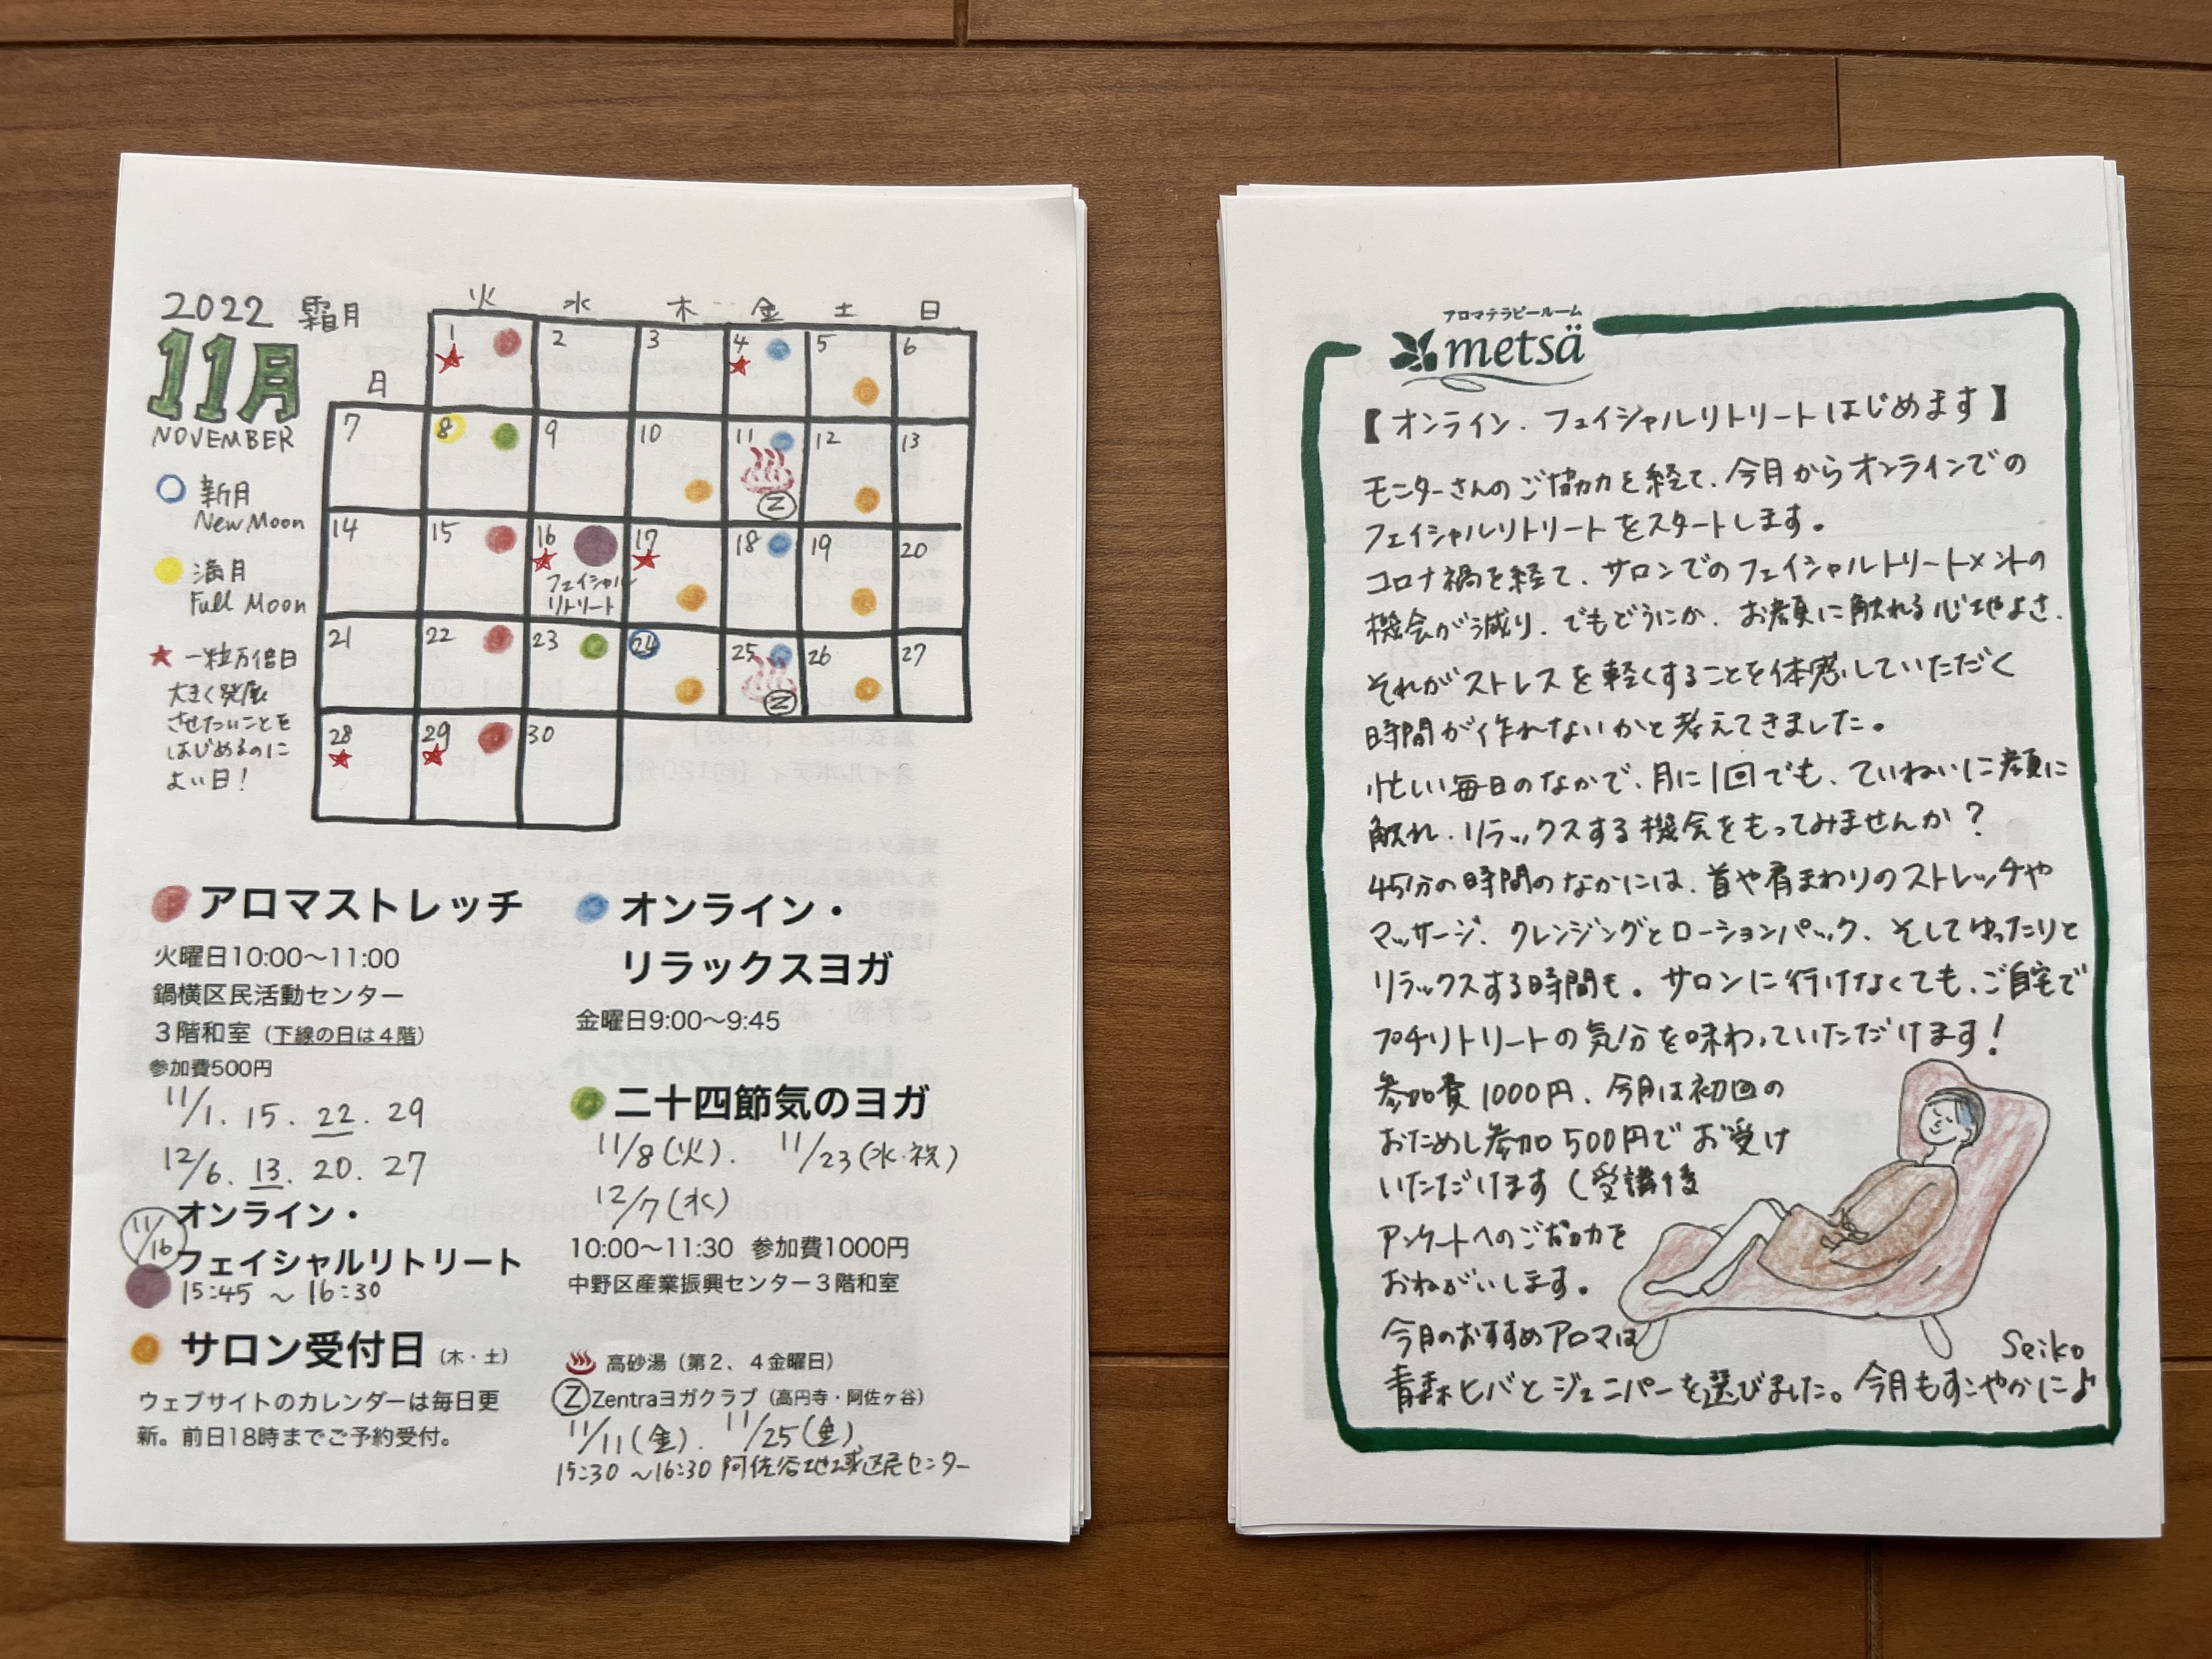 2022 霜月
11月
NOVEMBER
火 水 木 金 土 日
日
1 2 3 4 5 6
7 8 9 10 11 12 13
Z
14 15 16 17 18 19 20
フェイシャル
リトリート
21 22 23 24 25 26 27
Z
28 29 30
新月
New Moon
満月
Full Moon
一粒万倍日
大きく発展
させたいことを
はじめるのに
よい日!
アロマストレッチ
火曜日10:00〜11:00
鍋横区民活動センター
3階和室(下線の日は4階)
参加費500円
11/1. 15. 22. 29
12/6. 13. 20. 27
11/16
オンライン・
フェイシャルリトリート
15:45 〜 16:30
サロン受付日(木・土)
ウェブサイトのカレンダーは毎日更
新。前日18時までご予約受付。
オンライン・
リラックスヨガ
金曜日9:00〜9:45
二十四節気のヨガ
11/8(火). 11/23(水・祝)
12/7(水)
10:00〜11:30 参加費1000円
中野区産業振興センター3階和室
高砂湯(第2、4金曜日)
Z Zentraヨガクラブ(高円寺・阿佐ヶ谷)
11/11(金). 11/25(金)
15:30 〜16:30 阿佐谷地域区民センター
アロマテラピールーム
metsä
【オンライン.フェイシャルリトリートはじめます】
モニターさんのご協力を経て、今月からオンラインでの
フェイシャルリトリートをスタートします。
コロナ禍を経て、サロンでのフェイシャルトリートメントの
機会が減り、でもどうにか、お顔に触れる心地よさ、
それがストレスを軽くすることを体感していただく
時間が作れないかと考えてきました。
忙しい毎日のなかで、月に1回でも、ていねいに顔に
触れ、リラックスする機会をもってみませんか?
45分の時間のなかには、首や肩まわりのストレッチや
マッサージ、クレンジングとローションパック、そしてゆったりと
リラックスする時間も。サロンに行けなくても、ご自宅で
プチリトリートの気分を味わっていただけます!
参加費1000円、今月は初回の
おためし参加500円でお受け
いただけます(受講後
アンケートへのご協力を
おねがいします。
今月のおすすめアロマは
青森ヒバとジュニパーを選びました。今月もすこやかに♪
Seiko